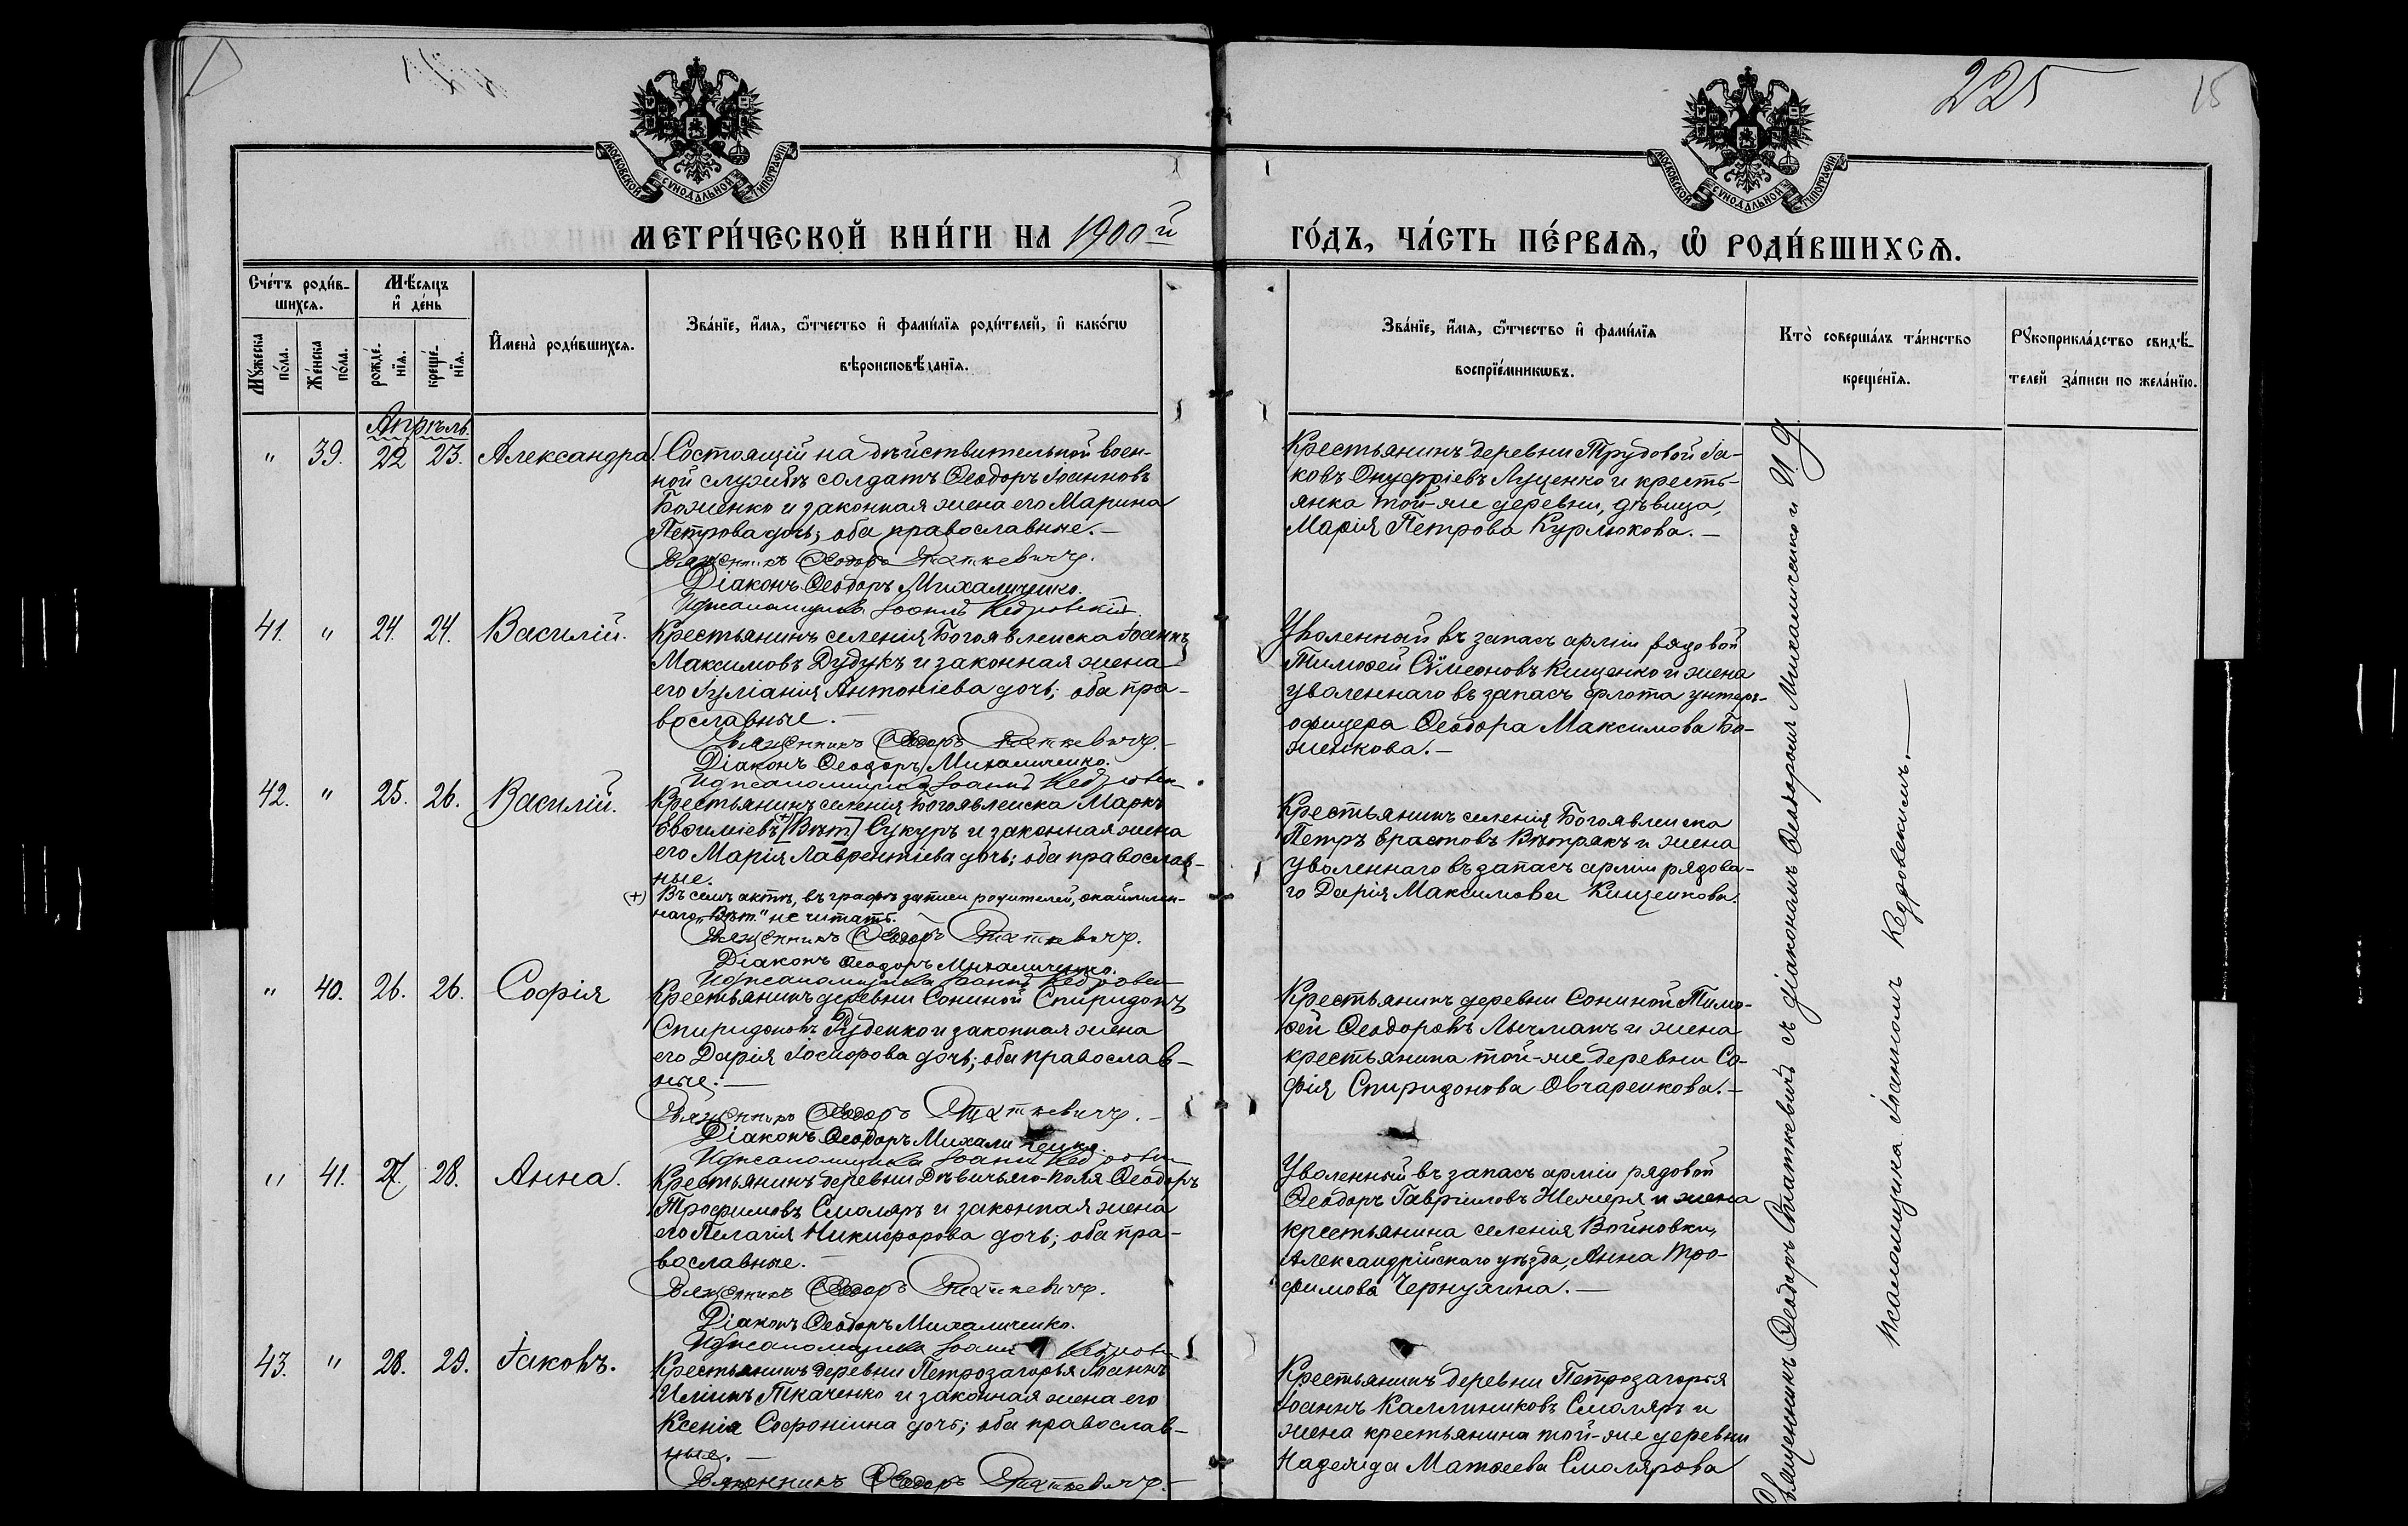 225
15
МОСКОВСКОЙ СѴНОДАЛЬНОЙ ТИПОГРАФІИ
МОСКОВСКОЙ СѴНОДАЛЬНОЙ ТИПОГРАФІИ
МЕТРИ́ЧЕСКОЙ КНИ́ГИ НА 1900й
ГО́ДЪ, ЧА́СТЬ ПЕ́РВАЯ, Ѡ РОДИ́ВШИХСЯ.
Счéтъ роди́в-
шихся.
Мѣ́сяцъ
и҆ де́нь
Мꙋ́жеска
по́ла.
Же́нска
по́ла.
рожде́-
нїя.
креще́-
нїя.
И҆мена̀ роди́вшихся.
Зва́нїе, и҆́мя, ѻ҆́тчество и҆ фами́лїя роди́телей, и҆ како́гѡ
вѣроисповѣ́данїя.
Зва́нїе, и҆́мя, ѻ҆́тчество и҆ фами́лїя
воспрїе́мникѡвъ.
Кто̀ соверша́лъ та́инство
креще́нїя.
Рꙋкоприкла́дство свидѣ́-
телей за́писи по жела́нїю.
Апрѣль.
" 39. 22 23. Александра.
Состоящій на дѣйствительной воен-
ной службѣ солдатъ Ѳеодоръ Іоанновъ
Боженко и законная жена его Марина
Петрова дочь; оба православные.—
Священникъ Ѳеодоръ Статкевичъ.
Діаконъ Ѳеодоръ Михаличенко.
И д псаломщика Іоаннъ Кедровскій.
Крестьянинъ деревни Трудовой Іа-
ковъ Онуфріевъ Луценко и кресть-
янка той-же деревни, дѣвица,
Марія Петрова Курлюкова.—
41. " 24. 24. Василій.
Крестьянинъ селенія Богоявленска Іоаннъ
Максимовъ Дудукъ и законная жена
его Іуліанія Антоніева дочь; оба пра-
вославные.—
Священникъ Ѳеодоръ Статкевичъ.—
Діаконъ Ѳеодоръ Михаличенко.
И д псаломщика Іоаннъ Кедровскій
Уволенный въ запасъ арміи рядовой
Тимоѳей Сѵмеоновъ Кищенко и жена
уволеннаго въ запасъ флота унтеръ-
офицера Ѳеодора Максимова Бо-
женкова.—
42. " 25. 26. Василій.
Крестьянинъ селенія Богоявленска Маркъ
Евѳиміевъ (+) [Вѣт.] Сукуръ и законная жена
его Марія Лаврентіева дочь; оба православ-
ные.
(+) Въ семъ актѣ, въ графѣ записи родителей, окаймлен-
наго „Вѣт." не читать.
Священникъ Ѳеодоръ Статкевичъ.
Діаконъ Ѳеодоръ Михаличенко.
И д псаломщика Іоаннъ Кедровскій
Крестьянинъ селенія Богоявленска
Петръ Ерастовъ Вѣтрякъ и жена
уволеннаго въ запасъ арміи рядова-
го Дарія Максимова Кищенкова.
" 40. 26. 26. Софія
Крестьянинъ деревни Сониной Спиридонъ
Спиридоновъ Руденко и законная жена
его Дарія Іосифова дочь; оба православ-
ные.—
Священникъ Ѳеодоръ Статкевичъ.—
Діаконъ Ѳеодоръ Михаличенко.
И д псаломщика Іоаннъ Кедровскій
Крестьянинъ деревни Сониной Тимо-
ѳей Ѳеодоровъ Лычманъ и жена
крестьянина той-же деревни Со-
фія Спиридонова Овчаренкова.—
" 41. 27. 28. Анна.
Крестьянинъ деревни Дѣвичьяго-поля Ѳеодоръ
Трофимовъ Смоляръ и законная жена
его Пелагія Никифорова дочь; оба пра-
вославные.—
Священникъ Ѳеодоръ Статкевичъ.
Діаконъ Ѳеодоръ Михаличенко.
И д псаломщика Іоаннъ Кедровскій
Уволенный въ запасъ арміи рядовой
Ѳеодоръ Гавріиловъ Жемеря и жена
крестьянина селенія Войновки,
Александрійскаго уѣзда, Анна Тро-
фимова Чернухина.—
43. " 28. 29. Іаковъ.
Крестьянинъ деревни Петрозагорья Іоаннъ
Иліинъ Ткаченко и законная жена его
Ксенія Софроніина дочь; оба православ-
ные.—
Священникъ Ѳеодоръ Статкевичъ.—
Крестьянинъ деревни Петрозагорья
Іоаннъ Каллиниковъ Смоляръ и
жена крестьянина той-же деревни
Надежда Матѳеева Смолярова
Священникъ Ѳеодоръ Статкевичъ съ діакономъ Ѳеодоромъ Михаличенко и И. д.
псаломщика Іоанномъ Кедровскимъ.—